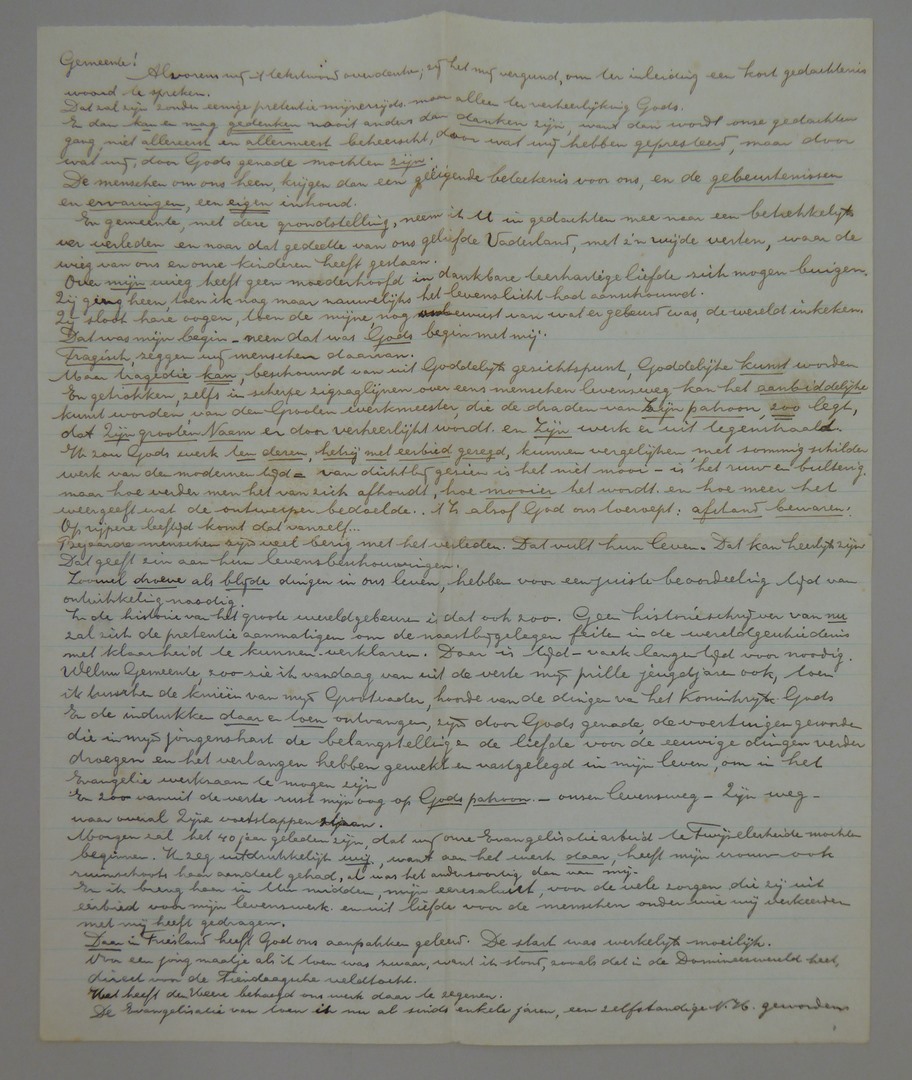 Gemeente!
Alvorens wij 't tekstwoord overdenken, zij het mij vergund, om ter inleiding een kort gedachtenis
woord te spreken.
Dat zal zijn zonder eenige pretentie mijnerzijds maar alleen ter verheerlijking Gods.
En dan kan en mag gedenken nooit anders dan danken zijn, want dan wordt onze gedachten
gang niet allereerst en allermeest beheerscht, door wat wij hebben gepresteerd, maar door
wat wij, door Gods genade mochten zijn.
De menschen om ons heen, krijgen dan een beteekenis voor ons, en de gebeurtenissen
en ervaringen, een eigen inhoud.
En gemeente, met deze grondstelling, neem ik U in gedachten mee naar een betrekkelijk
ver verleden en naar dat gedeelte van ons geliefde Vaderland, met z'n wijde verten, waar de
wieg van ons en onze kinderen heeft gestaan.
Over mijn wieg heeft geen moederhoofd in dankbare teerhartige liefde zich mogen buigen.
Zij ging heen, toen ik nog maar nauwelijks het levenslicht had aanschouwd.
Zij sloot hare oogen, toen de mijne, nog onbewust van wat er gebeurd was, de wereld inkeken.
Dat was mijn begin - neen dat was Gods begin met mij.
Tragisch, zeggen wij menschen daarvan.
Maar tragedie kan, beschouwd van uit Goddelijk gezichtspunt, Goddelijke kunst worden
En getrokken, zelfs in scherpe zigzaglijnen over eens menschen levensweg kan het aanbiddelijke
kunst worden, van den Grooten werkmeester, die de draden van Zijn patroon, zoo legt,
dat Zijn grooten Naam er door verheerlijkt wordt. en Zijn werk er uit tegenstraalt.
Ik zou Gods werk ten deren, hetzij met eerbied gezegd, kunnen vergelijken met sommig schilder
werk van den modernen tijd = van dichtbij gezien is het niet mooi - is 't ruw en bulterig.
maar hoe verder men het van zich afhoudt, hoe mooier het wordt. en hoe meer het
weergeeft wat de ontwerper bedoelde.. 't Is alsof God ons toeroept: afstand bewaren!
Op rijpere leeftijd komt dat vanzelf...
Bejaarde menschen zijn veel bezig met het verleden. Dat vult hun leven. Dat kan heerlijk zijn
Dat geeft zin aan hun levensbeschouwingen.
Zoowel droeve als blijde dingen in ons leven, hebben voor een juiste beoordeeling tijd van
ontwikkeling noodig.
In de historie van het groote wereldgebeuren is dat ook zoo. Geen historieschrijver van nu
zal zich de pretentie aanmatigen om de naastbijgelegen feiten in de wereldgeschiedenis
met klaarheid te kunnen verklaren. Daar is tijd - vaak langen tijd voor noodig.
Welnu Gemeente, zoo zie ik vandaag van uit de verte mijn prille jeugdjaren ook, toen
ik tusschen de knieën van mijn Grootvader, hoorde van de dingen van het Koninkrijk Gods
En de indrukken daar en toen ontvangen, zijn door Gods genade, de voertuigen geworden
die in mijn jongenshart de belangstelling en de liefde voor de eeuwige dingen verder
droegen en het verlangen hebben gewekt en vastgelegd in mijn leven, om in het
Evangelie werkzaam te mogen zijn
En zoo vanuit de verte rust mijn oog op Gods patroon. - onzen levensweg - Zijn weg -
waar overal Zijne voetstappen staan.
Morgen zal het 40 jaar geleden zijn, dat wij onze Evangelisatiearbeid te Twijzelerheide mochten
beginnen. Ik zeg uitdrukkelijk wij, want aan het werk daar, heeft mijn vrouw ook
ruimschoots haar aandeel gehad, al was het andersoortig dan van mij.
En ik breng haar in Uw midden, mijn eeresaluut, voor de vele zorgen, die zij uit
eerbied voor mijn levenswerk. en uit liefde voor de menschen onder wie wij verkeerden
met mij heeft gedragen.
Daar in Friesland heeft God ons aanpakken geleerd. De start was werkelijk moeilijk.
Voor een jong maatje als ik toen was zwaar, want ik stond, zooals dat in de Domineeswereld heet,
direct voor de Tiendaagsche veldtocht.
Het heeft den Heere behaagd ons werk daar te zegenen.
De Evangelisatie van toen is nu al sinds enkele jaren, een zelfstandige N.H. geworden